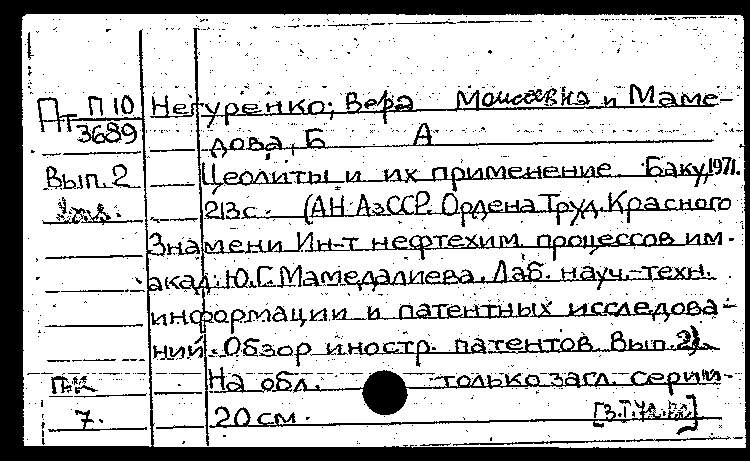 Пт П10 Негуренко, Вера Моисеевна и Маме-
3689 дова, Б А
Вып. 2 Цеолиты и их применение. Баку, 1971.
213с. (АН АзССР. Ордена Труд. Красного
Знамени Ин-т нефтехим. процессов им.
акад. Ю.Г. Мамедалиева. Лаб. науч.-техн.
информации и патентных исследова-
ний. Обзор иностр. патентов. Вып. 2).
На обл. только загл. серии.
7. 20 см.